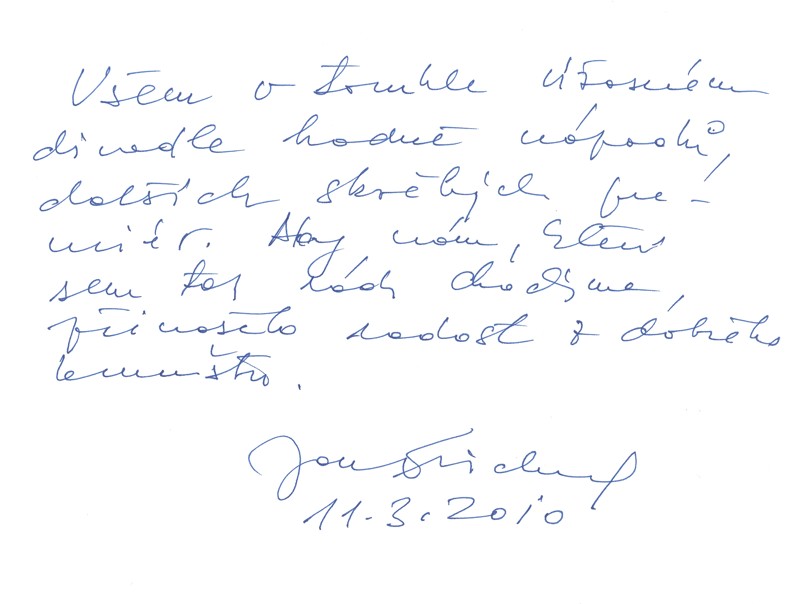 Všem v tomhle úžasném
divadle hodně nápadů,
dalších skvělých pre-
miér. Aby nám, kteří
sem tak rádi chodíme,
přinášelo radost z dobrého
humoru.
Jan
11.3.2010